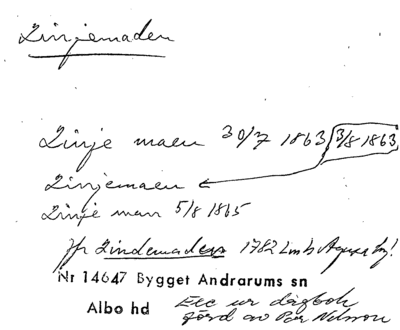 Linjemaden
Linje maen 30/7 1863 3/8 1863
Linjemaen
Linje man 5/8 1865
jfr Lindemaden 1782 Lmh
Nr 14647 Bygget Andrarums sn
Albo hd Exc ur dagbok
förd av Per Nilsson